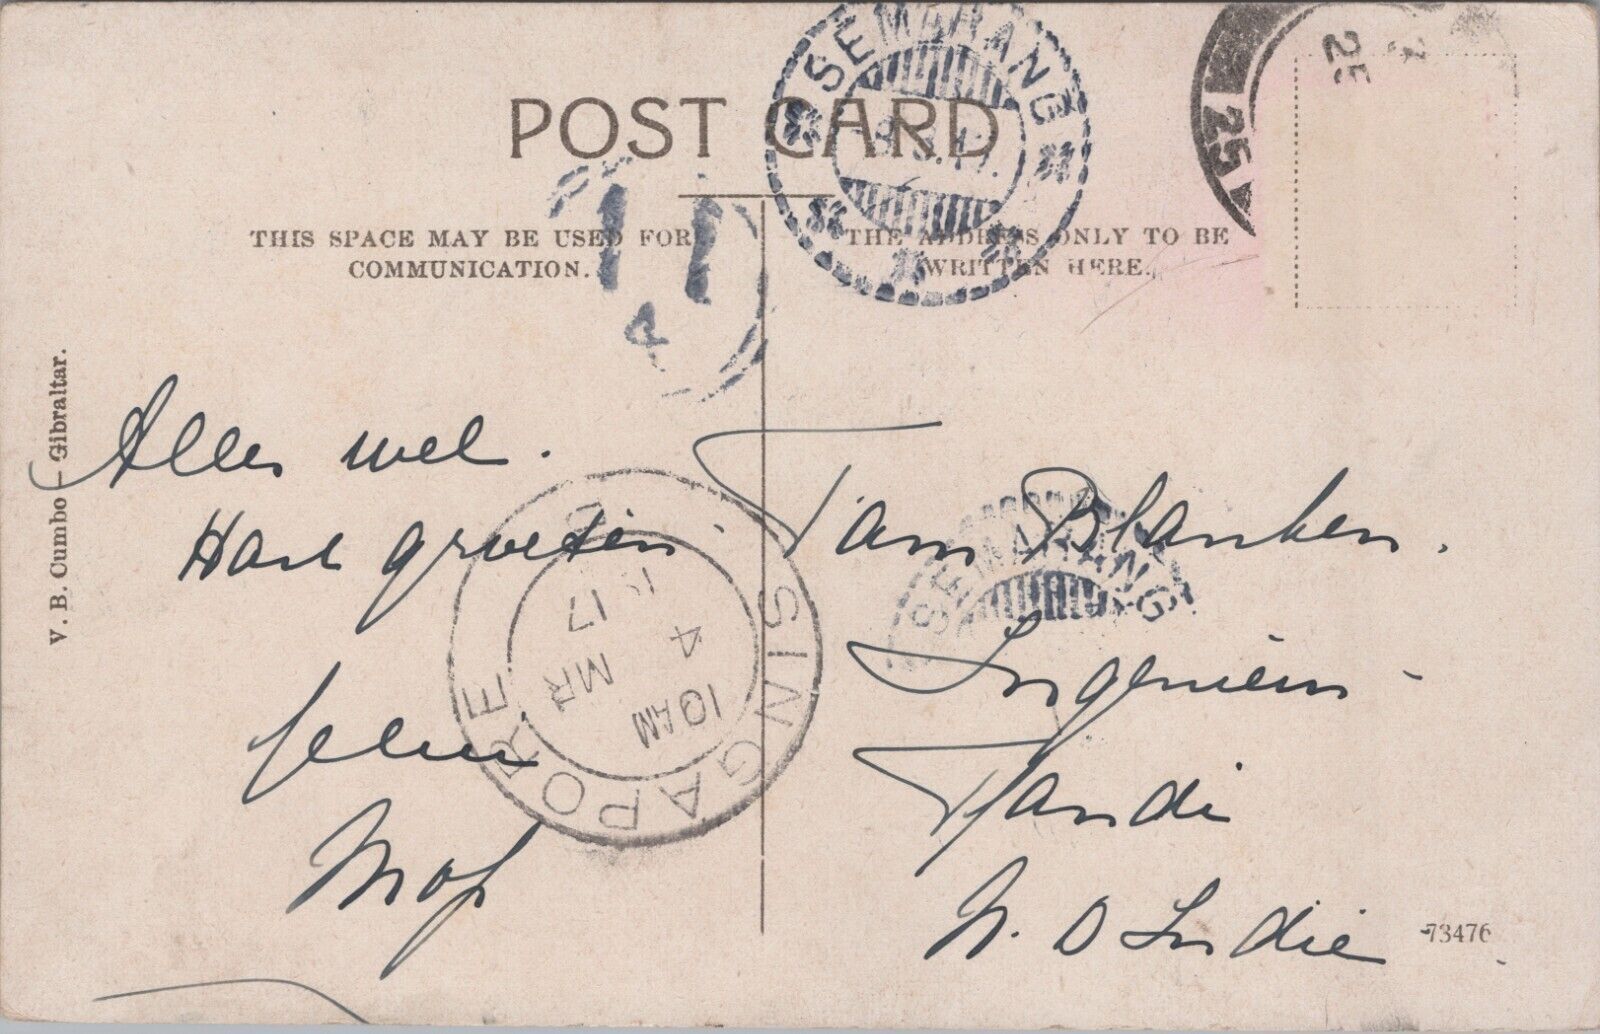 POST CARD
THIS SPACE MAY BE USED FOR
COMMUNICATION.
THE ADDRESS ONLY TO BE
WRITTEN HERE.
SEMARANG
25
25
11
4
V. B. Cumbo - Gibraltar.
Alles wel.
Hart groeten
Mop
SINGAPORE
10 AM
4
MR
17
Fam Blanken.
SEMARANG
Ingenieur
Kandi
N. O Indie
73476